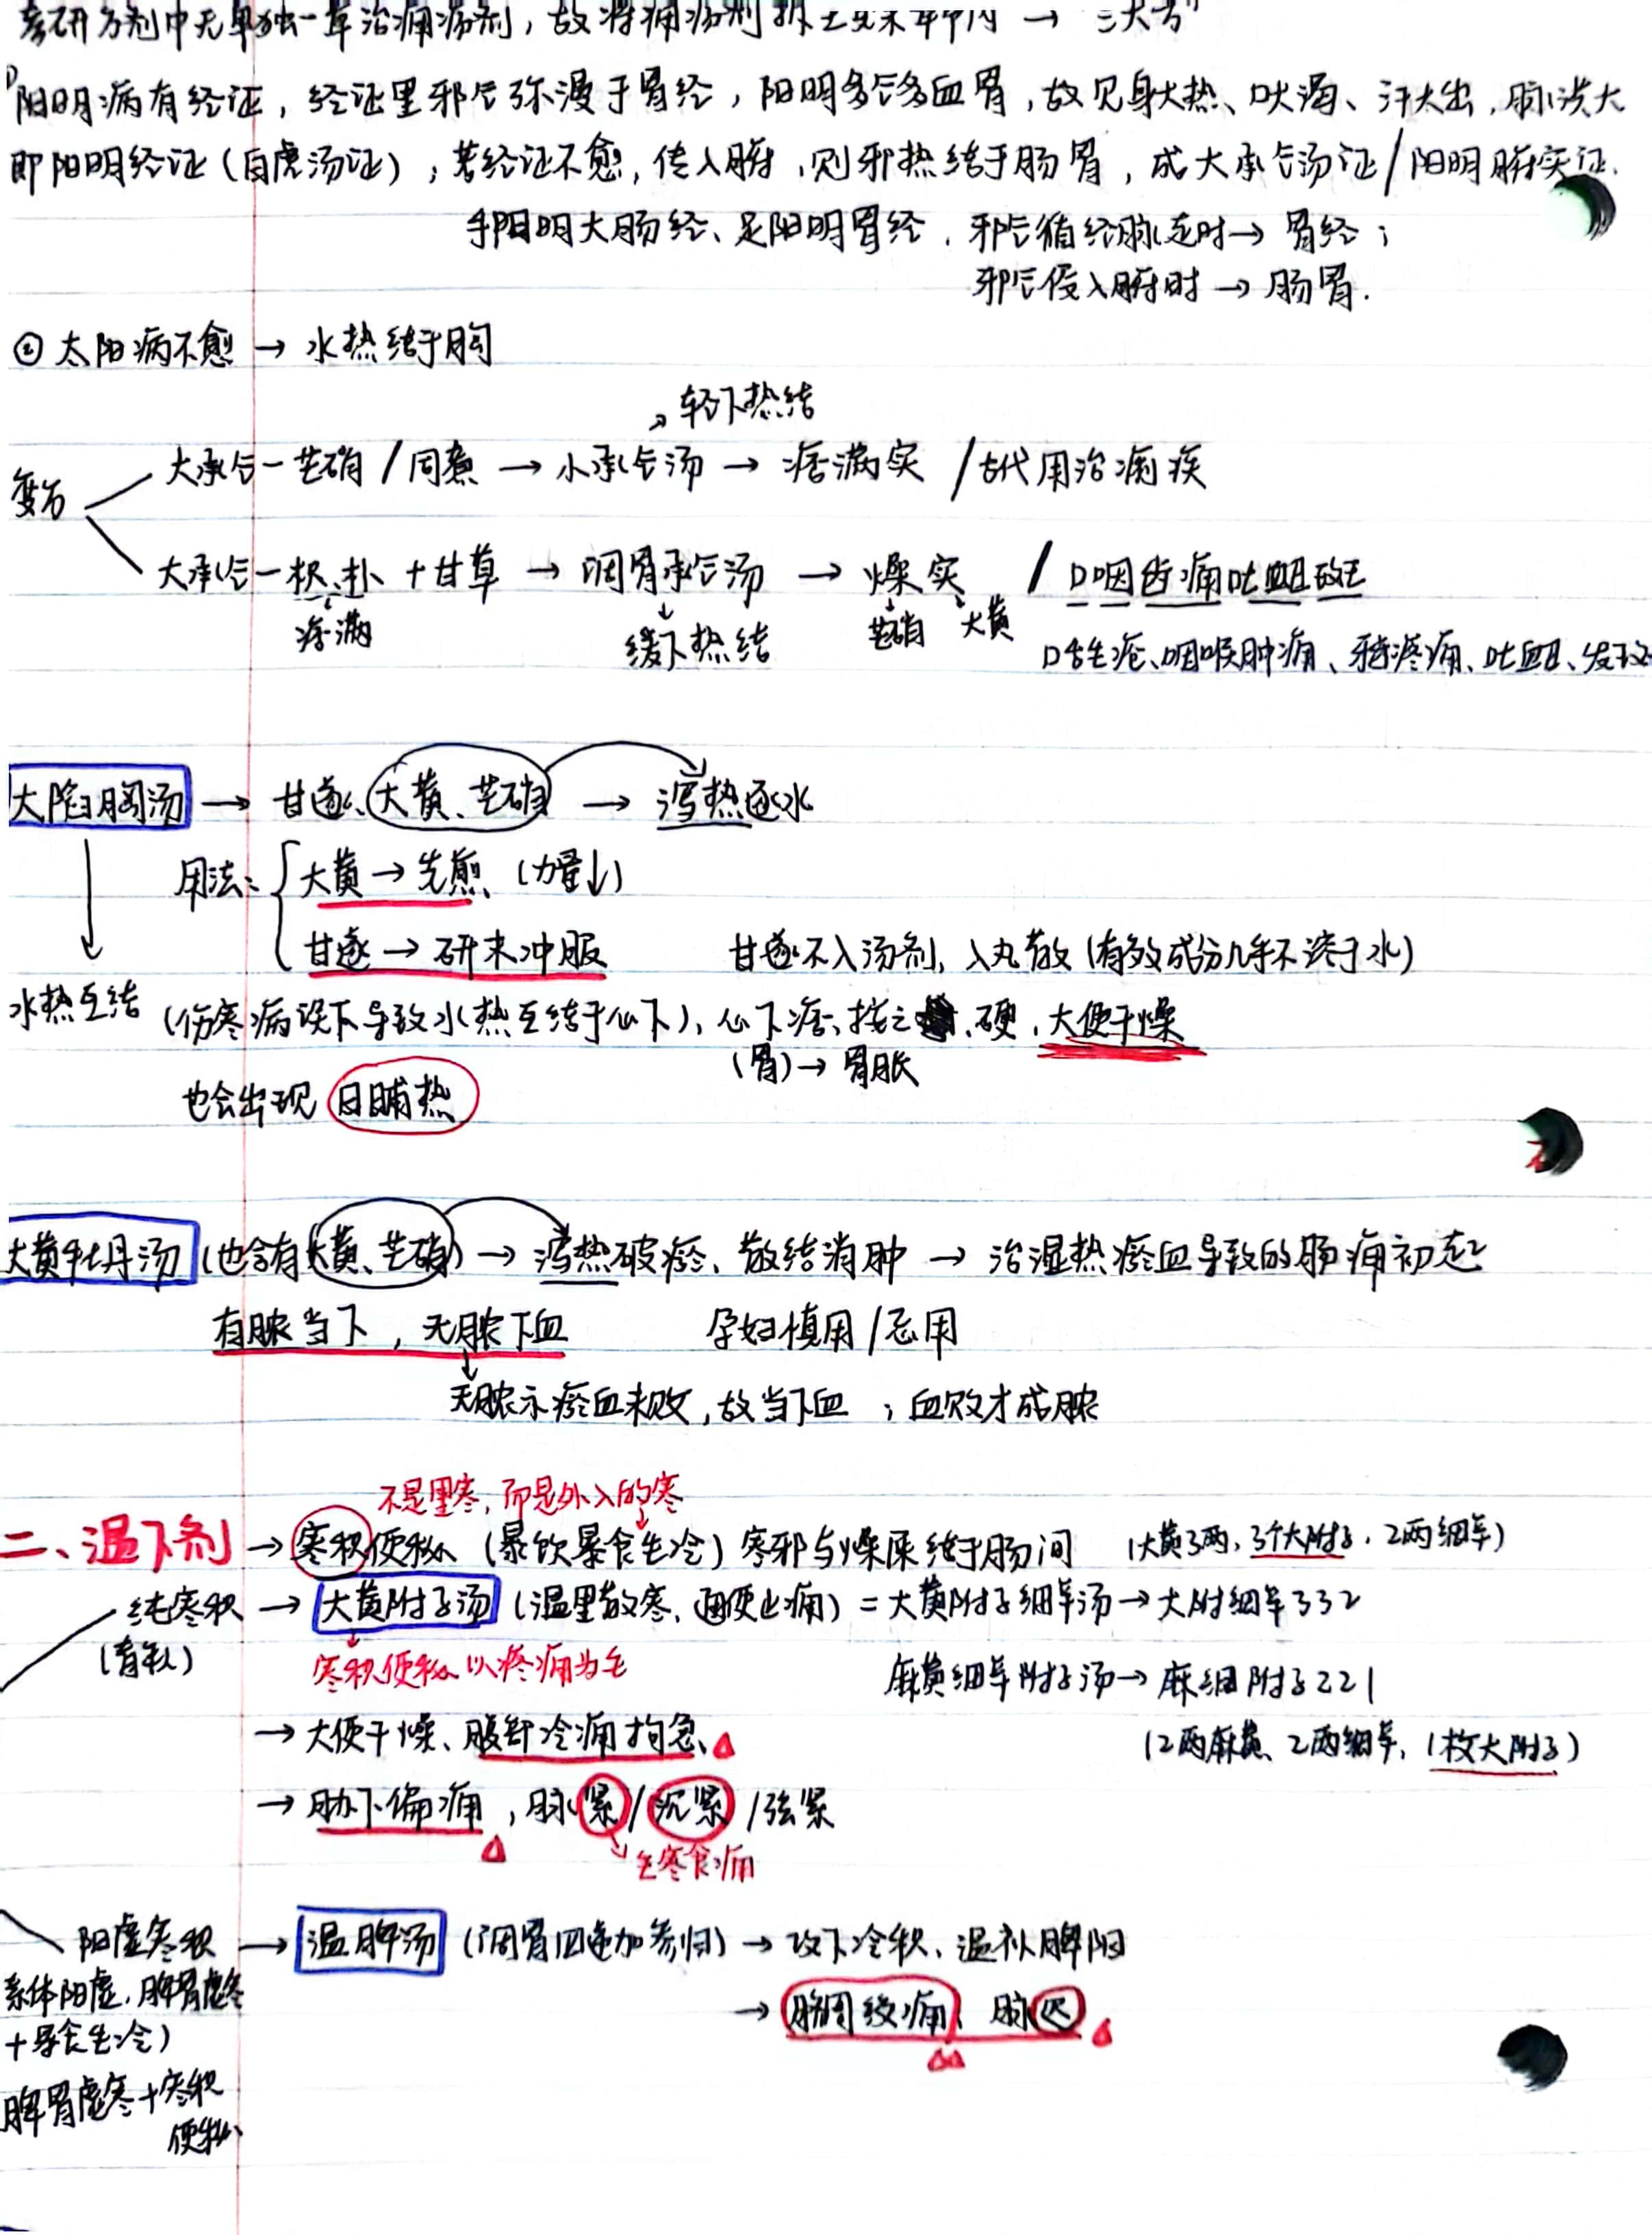 考研方剂中无单独一章治痈疡剂，故将痈疡剂 → 三大方
① 阳明病有经证，经证里邪气弥漫于胃经，阳明多气多血胃，故见身大热、口大渴、汗大出，脉洪大
即阳明经证（白虎汤证），若经证不愈，传入腑，则邪热结于肠胃，成大承气汤证/阳明腑实证.
手阳明大肠经、足阳明胃经．邪气循经脉走时→ 胃经；
邪气侵入腑时 → 肠胃.
② 太阳病不愈 → 水热结于胸
轻下热结
变方
大承气－芒硝/同煎 → 小承气汤 → 痞满实 /古代用治痢疾
大承气－枳、朴 ＋甘草 → 调胃承气汤 → 燥实 / 口咽齿痛吐衄斑
痞满 缓下热结 芒硝 大黄
口舌生疮、咽喉肿痛、牙齿疼痛、吐衄、发斑
大陷胸汤 → 甘遂、大黄、芒硝 → 泻热逐水
用法： 大黄 → 先煎 （力量↓）
甘遂 → 研末冲服 甘遂不入汤剂，入丸散（有效成份几乎不溶于水）
水热互结 （伤寒病误下导致水热互结于心下），心下痞、按之 硬，大便干燥
（胃）→ 胃胀
也会出现 日晡热
大黄牡丹汤 （也含有大黄、芒硝）→ 泻热破瘀、散结消肿 → 治湿热瘀血导致的肠痈初起
有脓当下，无脓下血 孕妇慎用/忌用
无脓示瘀血未败，故当下血 ；血败才成脓
不是里寒，而是外入的寒
二、温下剂 → 寒积便秘 （暴饮暴食生冷）寒邪与燥屎结于肠间 （大黄3两，3个大附子，2两细辛）
纯寒积 → 大黄附子汤 （温里散寒、通便止痛）＝大黄附子细辛汤→大附细辛332
（有积） 寒积便秘以疼痛为主 麻黄细辛附子汤→ 麻细附子221
→ 大便干燥、腹部冷痛拘急、 （2两麻黄、2两细辛，1枚大附子）
→ 胁下偏痛，脉紧/沉紧/弦紧
主寒食痛
阳虚寒积 → 温脾汤 （调胃四逆加参归）→ 攻下冷积、温补脾阳
素体阳虚，脾胃虚寒 → 脐周绞痛、脉迟
＋暴食生冷）
脾胃虚寒＋寒积
便秘